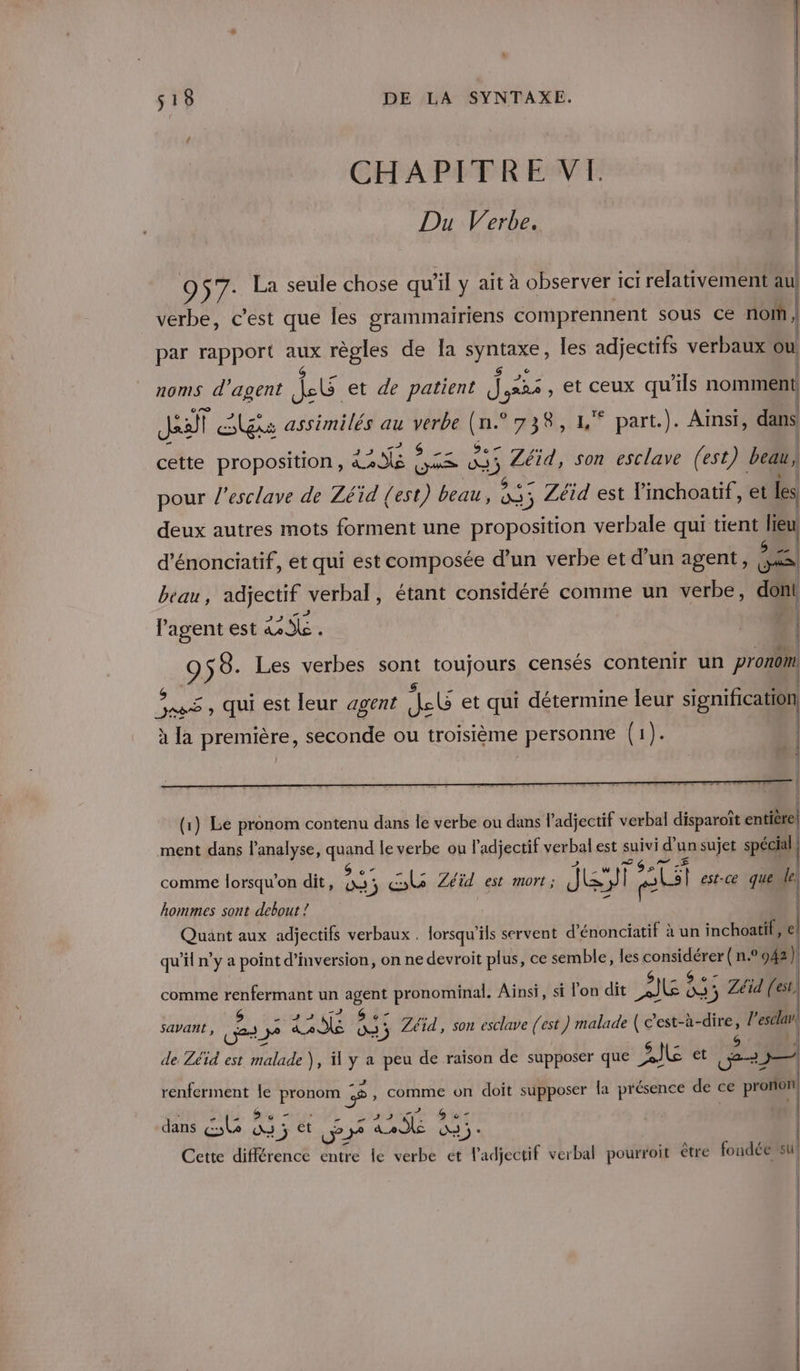 518 DE LA SYNTAXE.
CHAPITRE VI.
Du Verbe.
957. La seule chose qu'il y ait à observer ici relativement au
verbe, c'est que les grammairiens comprennent sous ce nom,
par rapport aux règles de la syntaxe, les adjectifs verbaux ou
noms d'agent فَاعِلٌ et de patient مَفْعُولٌ, et ceux qu'ils nomment
assimilés au verbe (n.° 738, I.re part.). Ainsi, dans
cette proposition, زَيْدٌ حَسَنٌ غُلَامُهُ Zéïd, son esclave (est) beau,
pour l'esclave de Zéïd (est) beau, زَيْدٌ Zéïd est l'inchoatif, et les
deux autres mots forment une proposition verbale qui tient lieu
d'énonciatif, et qui est composée d'un verbe et d'un agent, حَسَنٌ
beau, adjectif verbal, étant considéré comme un verbe, dont
l'agent est غُلَامُهُ.
958. Les verbes sont toujours censés contenir un pronom
ضَمِيرٌ, qui est leur agent فَاعِلٌ et qui détermine leur signification
à la première, seconde ou troisième personne (1).
(1) Le pronom contenu dans le verbe ou dans l'adjectif verbal disparoît entière
ment dans l'analyse, quand le verbe ou l'adjectif verbal est suivi d'un sujet spécial,
comme lorsqu'on dit, مَاتَ زَيْدٌ Zéïd est mort; أَقَائِمٌ الرِّجَالُ est-ce que le
hommes sont debout!
Quant aux adjectifs verbaux, lorsqu'ils servent d'énonciatif à un inchoatif, e
qu'il n'y a point d'inversion, on ne devroit plus, ce semble, les considérer (n.° 942)
comme renfermant un agent pronominal. Ainsi, si l'on dit زَيْدٌ عَالِمٌ Zéïd (est)
savant, زَيْدٌ غُلَامُهُ مَرِيضٌ Zéïd, son esclave (est) malade (c'est-à-dire, l'esclav
de Zéïd est malade), il y a peu de raison de supposer que عَالِمٌ et مَرِيضٌ
renferment le pronom هُوَ, comme on doit supposer la présence de ce pronom
dans زَيْدٌ مَاتَ et زَيْدٌ غُلَامُهُ مَرِضَ.
Cette différence entre le verbe et l'adjectif verbal pourroit être fondée su